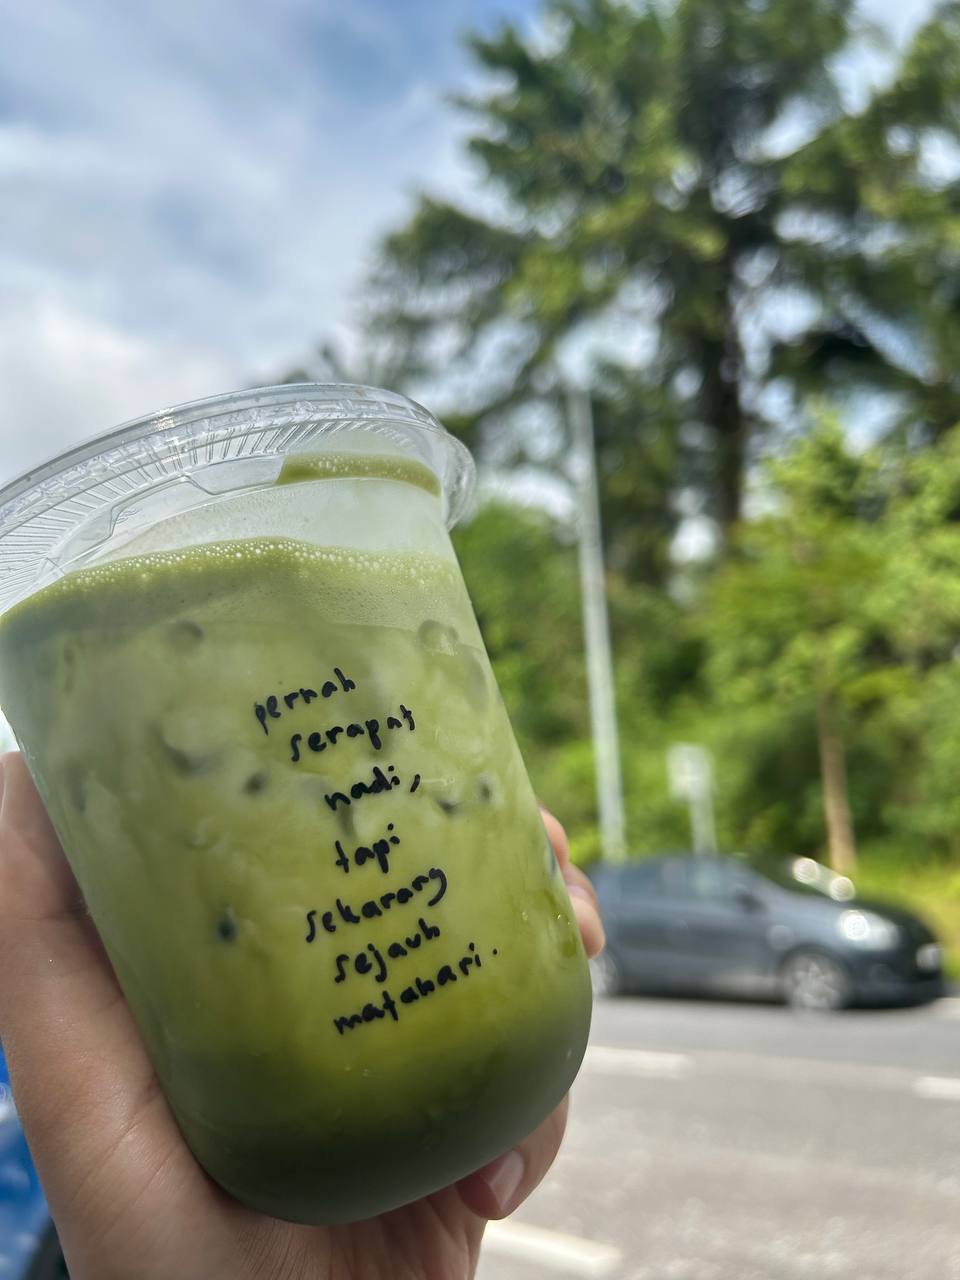 pernah
serapat
nadi,
tapi
sekarang
sejauh
matahari.